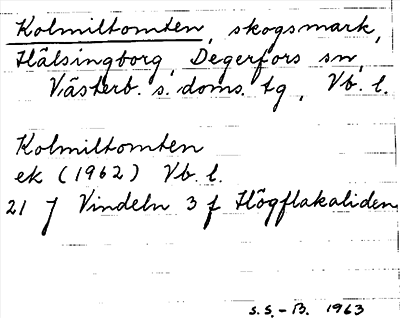 Kolmiltomten, skogsmark,
Hälsingborg, Degerfors sn,
Västerb. s. doms. tg, Vb. l.
Kolmiltomten
ek (1962) Vb. l.
21 J Vindeln 3 f Högflakaliden
S.S.-B. 1963